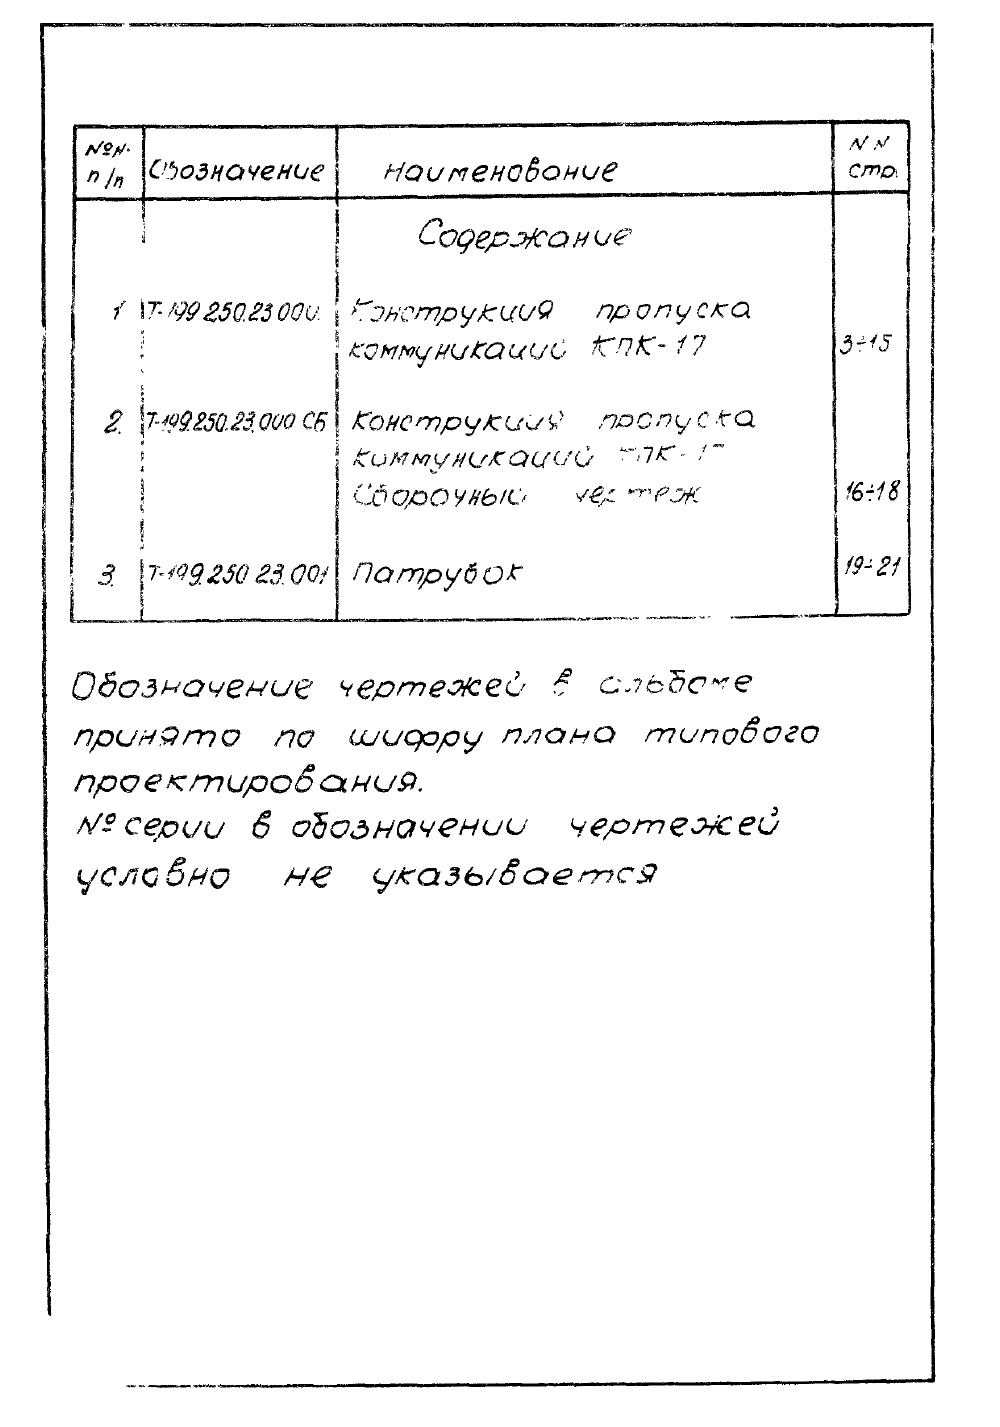 №№ п/п Обозначение Наименование NN стр.
Содержание
1 Т-199.250.23.000. Конструкция пропуска
коммуникаций КПК-17 3÷15
2. Т-199.250.23.000 СБ Конструкция пропуска
коммуникаций КПК-17
Сборочный чертеж 16÷18
3. Т-199.250.23.001 Патрубок 19÷21
Обозначение чертежей в альбоме
принято по шифру плана типового
проектирования.
№ серии в обозначении чертежей
условно не указывается